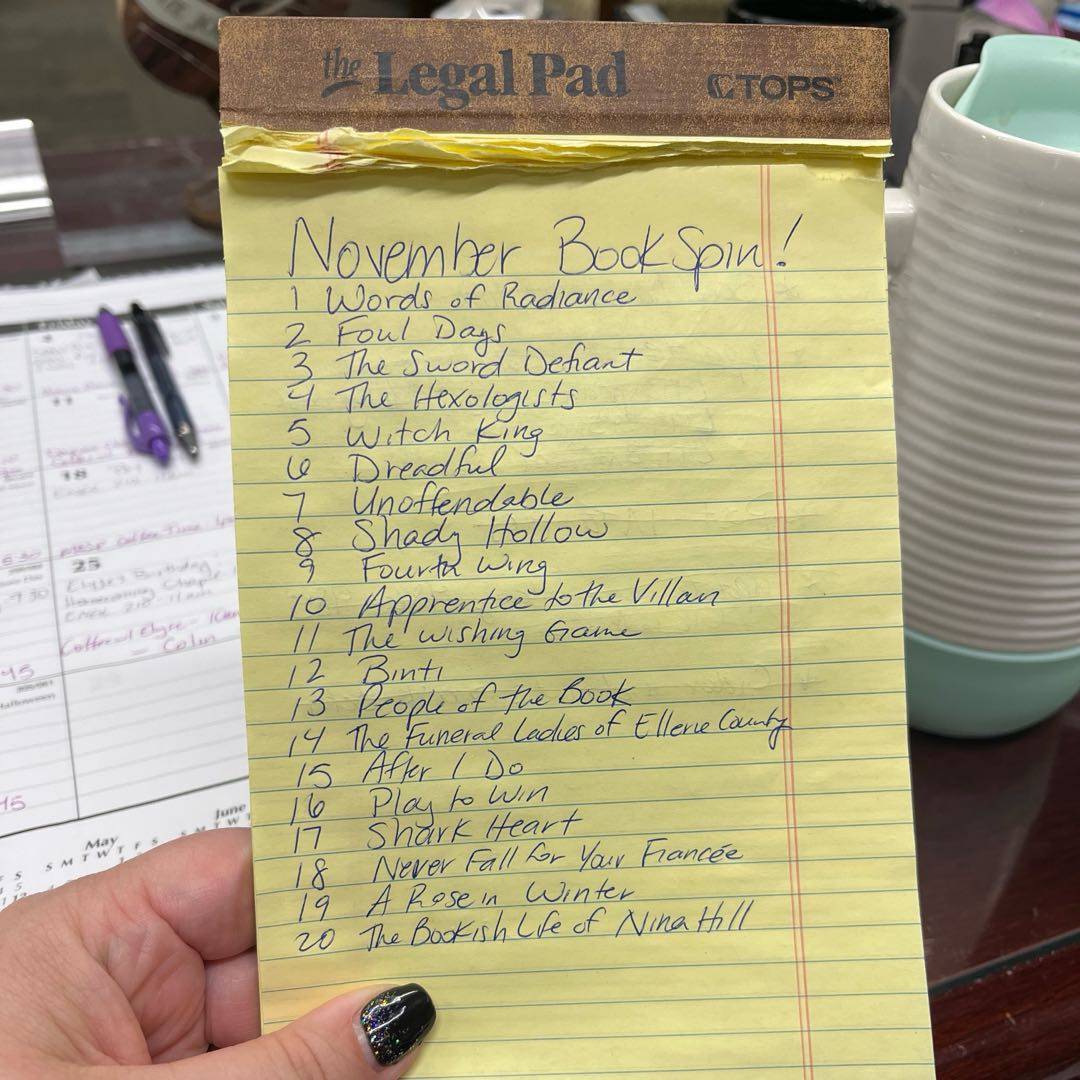 the Legal Pad TOPS
November Book Spin!
1 Words of Radiance
2 Foul Days
3 The Sword Defiant
4 The Hexologists
5 Witch King
6 Dreadful
7 Unoffendable
8 Shady Hollow
9 Fourth Wing
10 Apprentice to the Villan
11 The Wishing Game
12 Binti
13 People of the Book
14 The Funeral Ladies of Ellerie County
15 After I Do
16 Play to Win
17 Shark Heart
18 Never Fall for Your Fiancée
19 A Rose in Winter
20 The Bookish Life of Nina Hill
18
25
Elyse's Birthday
Homecoming Chapel
May
June
S M T W T F S